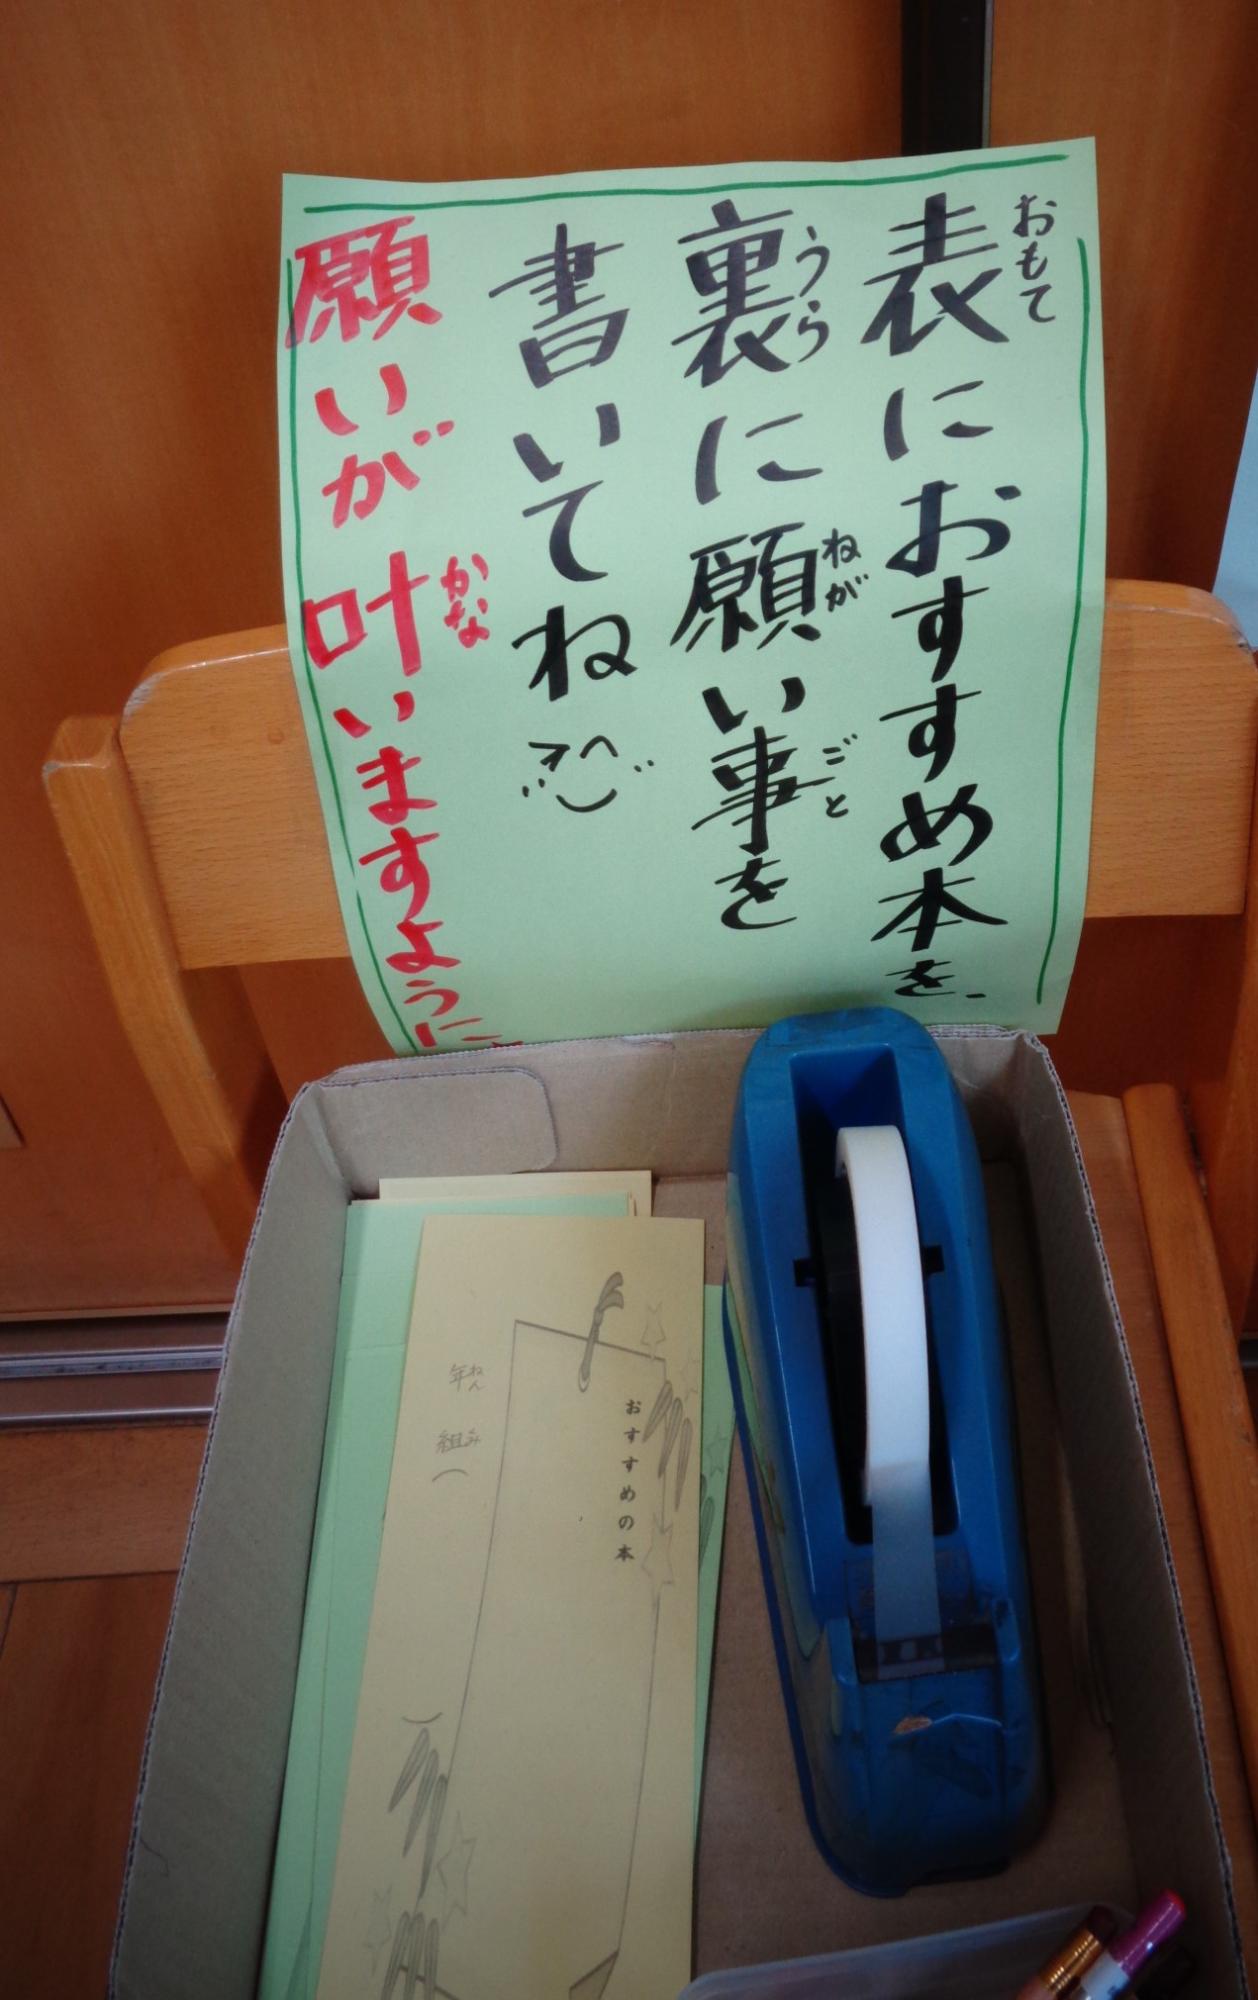 表におすすめ本を、
おもて
裏に願い事を
うら
ねが
ごと
書いてね
願いが叶いますように
かな
おすすめの本
年 組 (
ねん
み
)